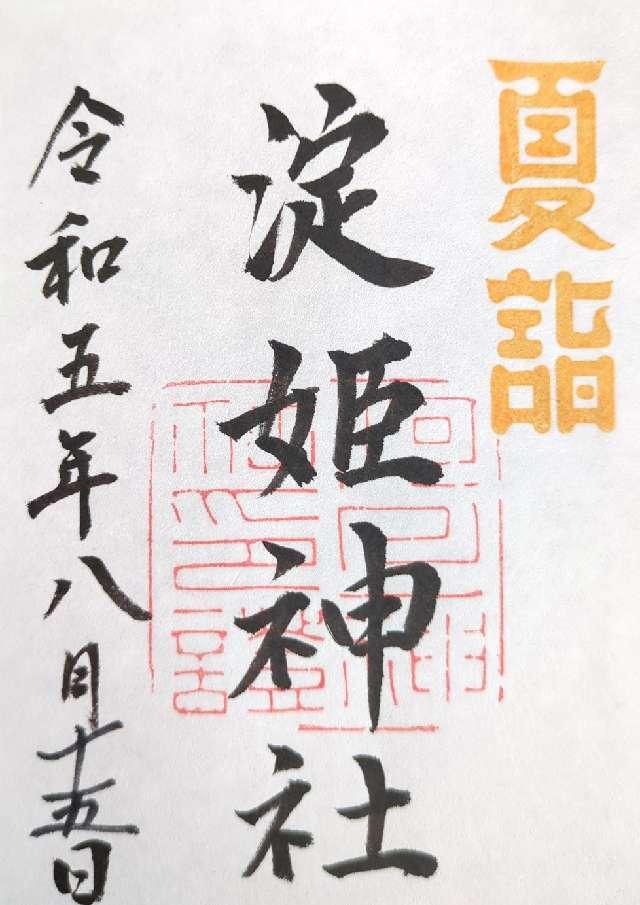 夏詣
淀姫神社
令和五年八月十五日